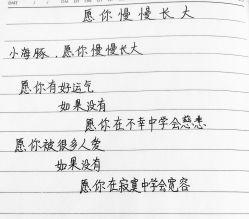 愿你慢慢长大
小海豚，愿你慢慢长大
愿你有好运气
如果没有
愿你在不幸中学会慈悲
愿你被很多人爱
如果没有
愿你在寂寞中学会宽容